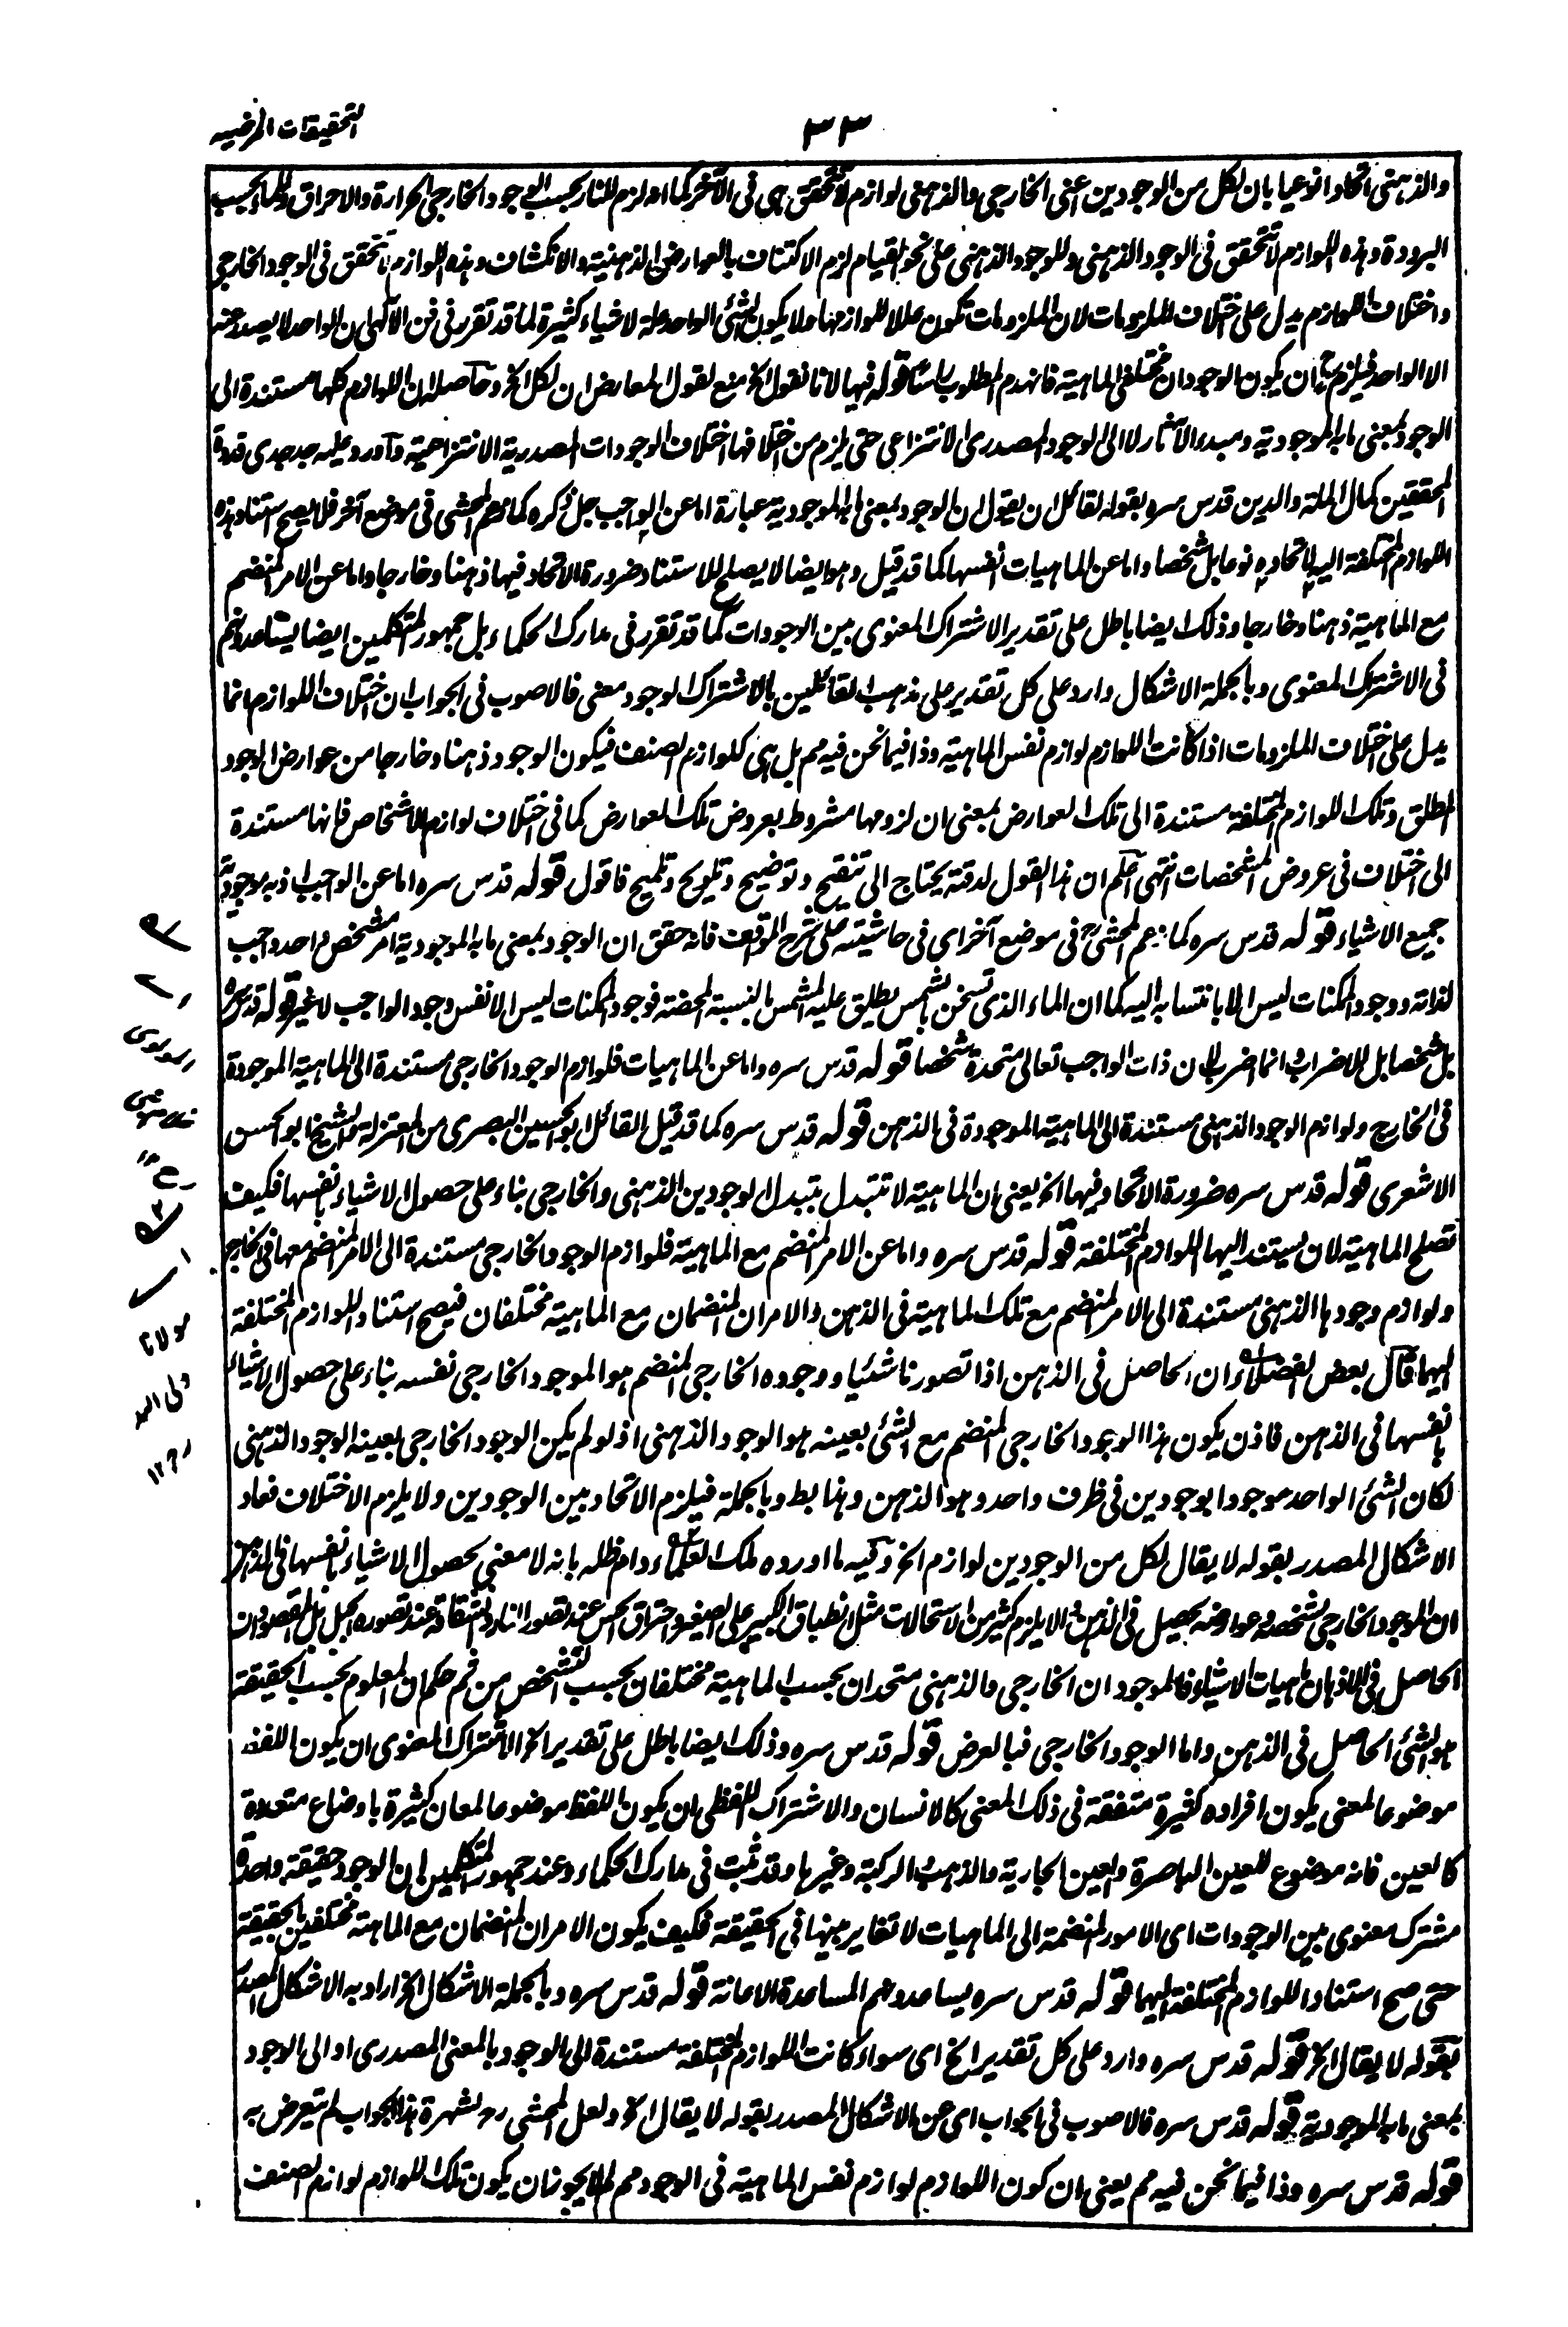 التحقيقات المرضيه
٣٣
والذهنى اتحادا نوعيا بان لكل من الوجودين اعنى الخارجى والذهنى لوازم لا تتحقق هى فى الآخر كما انه لزم للنار بحسب الوجود الخارجى الحرارة والاحراق وللماء بحسبه
البرودة وهذه اللوازم لا تتحقق فى الوجود الذهنى وللوجود الذهنى على نحو القيام لزم الاكتناف بالعوارض الذهنية والانكشاف وهذه اللوازم لا تتحقق فى الوجود الخارجى
واختلاف اللوازم يدل على اختلاف الملزومات لان الملزومات تكون عللا للوازمها ولا يكون الشئ الواحد علة لاشياء كثيرة لما قد تقرر فى فن الآلهى ان الواحد لا يصدر عنه
الا الواحد فيلزم ح ان يكون الوجودان مختلفى الماهية فانهدم المطلوب باساسه قوله فيها لانا نقول الخ منع لقول المعارض ان لكل الخ وحاصله ان اللوازم كلها مستندة الى
الوجود بمعنى ما به الموجودية ومبدء الآثار لا الى الوجود المصدرى الانتزاعى حتى يلزم من اختلافها اختلاف الوجودات المصدرية الانتزاعية وآورد عليه جد جدى قدوة
المحققين كمال الملة والدين قدس سره بقوله لقائل ان يقول ان الوجود بمعنى ما به الموجودية عبارة اما عن الواجب جل ذكره كما زعم المحشى فى موضع آخر فلا يصح استناد هذه
اللوازم المختلفة اليه لاتحاده نوعا بل شخصا واما عن الماهيات انفسها كما قد قيل وهو ايضا لا يصلح للاستناد ضرورة الاتحاد فيها ذهنا وخارجا واما عن الامر المنضم
مع الماهية ذهنا وخارجا وذلك ايضا باطل على تقدير الاشتراك المعنوى بين الوجودات كما قد تقرر فى مدارك الحكماء بل جمهور المتكلمين ايضا يساعدونهم
فى الاشتراك المعنوى وبالجملة الاشكال وارد على كل تقدير على مذهب القائلين بالاشتراك الوجود معنى فالاصوب فى الجواب ان اختلاف اللوازم انما
يدل على اختلاف الملزومات اذا كانت اللوازم لوازم نفس الماهية وذا فيما نحن فيه مم بل هى كلوازم الصنف فيكون الوجود ذهنا وخارجا من عوارض الوجود
المطلق وتلك اللوازم المختلفة مستندة الى تلك العوارض بمعنى ان لزومها مشروط بعروض تلك العوارض كما فى اختلاف لوازم الاشخاص فانها مستندة
الى اختلاف فى عروض المشخصات انتهى اعلم ان هذا القول لدقته يحتاج الى تنقيح وتوضيح وتلويح وتلميح فاقول قوله قدس سره اما عن الواجب اذ به موجودية
جميع الاشياء قوله قدس سره كما زعم المحشى فى موضع آخر اى فى حاشيته على شرح المواقف فانه حقق ان الوجود بمعنى ما به الموجودية امر مشخص واحد واجب
لذاته ووجود الممكنات ليس الا بانتسابه اليه كما ان الماء الذى تسخن بالشمس يطلق عليه المشمس بالنسبة المحضة فوجود الممكنات ليس الا نفس وجود الواجب لا غير قوله قدس سره
بل شخصا بل للاضراب وانما اضرب لان ذات الواجب تعالى متحدة شخصا قوله قدس سره واما عن الماهيات فلوازم الوجود الخارجى مستندة الى الماهية الموجودة
فى الخارج ولوازم الوجود الذهنى مستندة الى الماهية الموجودة فى الذهن قوله قدس سره كما قد قيل القائل ابو الحسين البصرى من المعتزلة والشيخ ابو الحسن
الاشعرى قوله قدس سره ضرورة الاتحاد فيهما الخ يعنى ان الماهية لا تتبدل بتبدل الوجودين الذهنى والخارجى بناء على حصول الاشياء بانفسها فكيف
تصلح الماهية لان يستند اليها اللوازم المختلفة قوله قدس سره واما عن الامر المنضم مع الماهية فلوازم الوجود الخارجى مستندة الى الامر المنضم معها فى الخارج
ولوازم وجودها الذهنى مستندة الى الامر المنضم مع تلك الماهية فى الذهن والامران المنضمان مع الماهية مختلفان فيصح استناد اللوازم المختلفة
اليهما قال بعض الفضلاء ان الحاصل فى الذهن اذا تصورنا شئيا ووجوده الخارجى المنضم هو الموجود الخارجى نفسه بناء على حصول الاشياء
بانفسها فى الذهن فاذن يكون هذا الوجود الخارجى المنضم مع الشئ بعينه هو الوجود الذهنى اذ لو لم يكن الوجود الخارجى بعينه الوجود الذهنى
لكان الشئ الواحد موجودا بوجودين فى ظرف واحد وهو الذهن وهذا بط وبالجملة فيلزم الاتحاد بين الوجودين ولا يلزم الاختلاف فعاد
الاشكال المصدر بقوله لا يقال لكل من الوجودين لوازم الخ وفيه ما اورده ملك العلماء دام ظله بانه لا معنى بحصول الاشياء بانفسها فى الذهن
ان الموجود الخارجى بشخصه وعوارضه يحصل فى الذهن والا يلزم كثير من الاستحالات مثل انطباق الكبير على الصغير واحتراق الحس عند تصور النار وانشقاقه عند تصوره الجبل بل المقصود ان
الحاصل فى الاذهان ماهيات الاشياء فالموجودان الخارجى والذهنى متحدان بحسب الماهية مختلفان بحسب التشخص من ثم حكم ان المعلوم بحسب الحقيقة
هو الشئ الحاصل فى الذهن واما الوجود الخارجى فبالعرض قوله قدس سره وذلك ايضا باطل على تقدير الخ الاشتراك المعنوى ان يكون اللفظ
موضوعا لمعنى يكون افراده كثيرة متفقة فى ذلك المعنى كالانسان والاشتراك اللفظى ان يكون اللفظ موضوعا لمعان كثيرة باوضاع متعددة
كالعين فانه موضوع للعين الباصرة والعين الجارية والذهب والركبة وغيرها وقد ثبت فى مدارك الحكماء وعند جمهور المتكلمين ان الوجود حقيقة واحدة
مشترك معنوى بين الوجودات اى الامور المنضمة الى الماهيات لا تغاير بينها فى الحقيقة فكيف يكون الامران المنضمان مع الماهية مختلفين بالحقيقة
حتى صح استناد اللوازم المختلفة اليهما قوله قدس سره يساعدوهم المساعدة الاعانة قوله قدس سره وبالجملة الاشكال الخ اراد به الاشكال المصدر
بقوله لا يقال الخ قوله قدس سره وارد على كل تقدير الخ اى سواء كانت اللوازم المختلفة مستندة الى الوجود بالمعنى المصدرى او الى الوجود
بمعنى ما به الموجودية قوله قدس سره فالاصوب فى الجواب اى عن الاشكال المصدر بقوله لا يقال الخ ولعل المحشى رح لشهرة هذا الجواب لم يتعرض به
قوله قدس سره وذا فيما نحن فيه مم يعنى ان كون اللوازم لوازم نفس الماهية فى الوجود مم لم لا يجوز ان يكون تلك اللوازم لوازم الصنف
مولانا
ولى الله
١٢